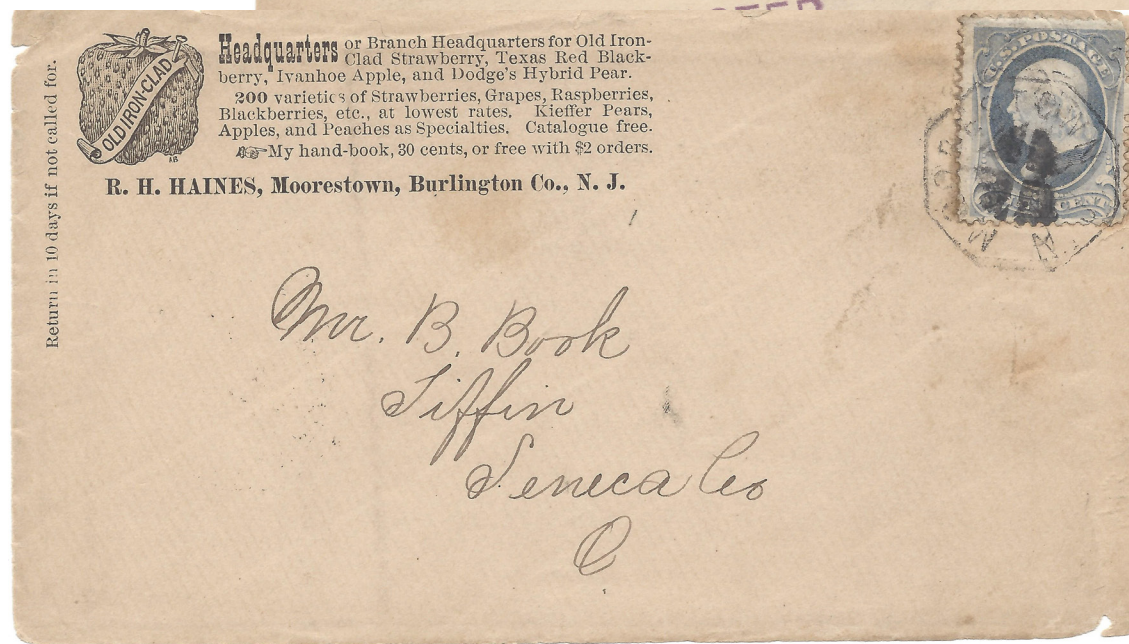 Return in 10 days if not called for.
OLD IRON-CLAD
AB
Headquarters or Branch Headquarters for Old Iron-
Clad Strawberry, Texas Red Black-
berry, Ivanhoe Apple, and Dodge's Hybrid Pear.
200 varieties of Strawberries, Grapes, Raspberries,
Blackberries, etc., at lowest rates. Kieffer Pears,
Apples, and Peaches as Specialties. Catalogue free.
My hand-book, 30 cents, or free with $2 orders.
R. H. HAINES, Moorestown, Burlington Co., N. J.
U.S. POSTAGE
Mr. B. Book
Tiffin
Seneca Co
O